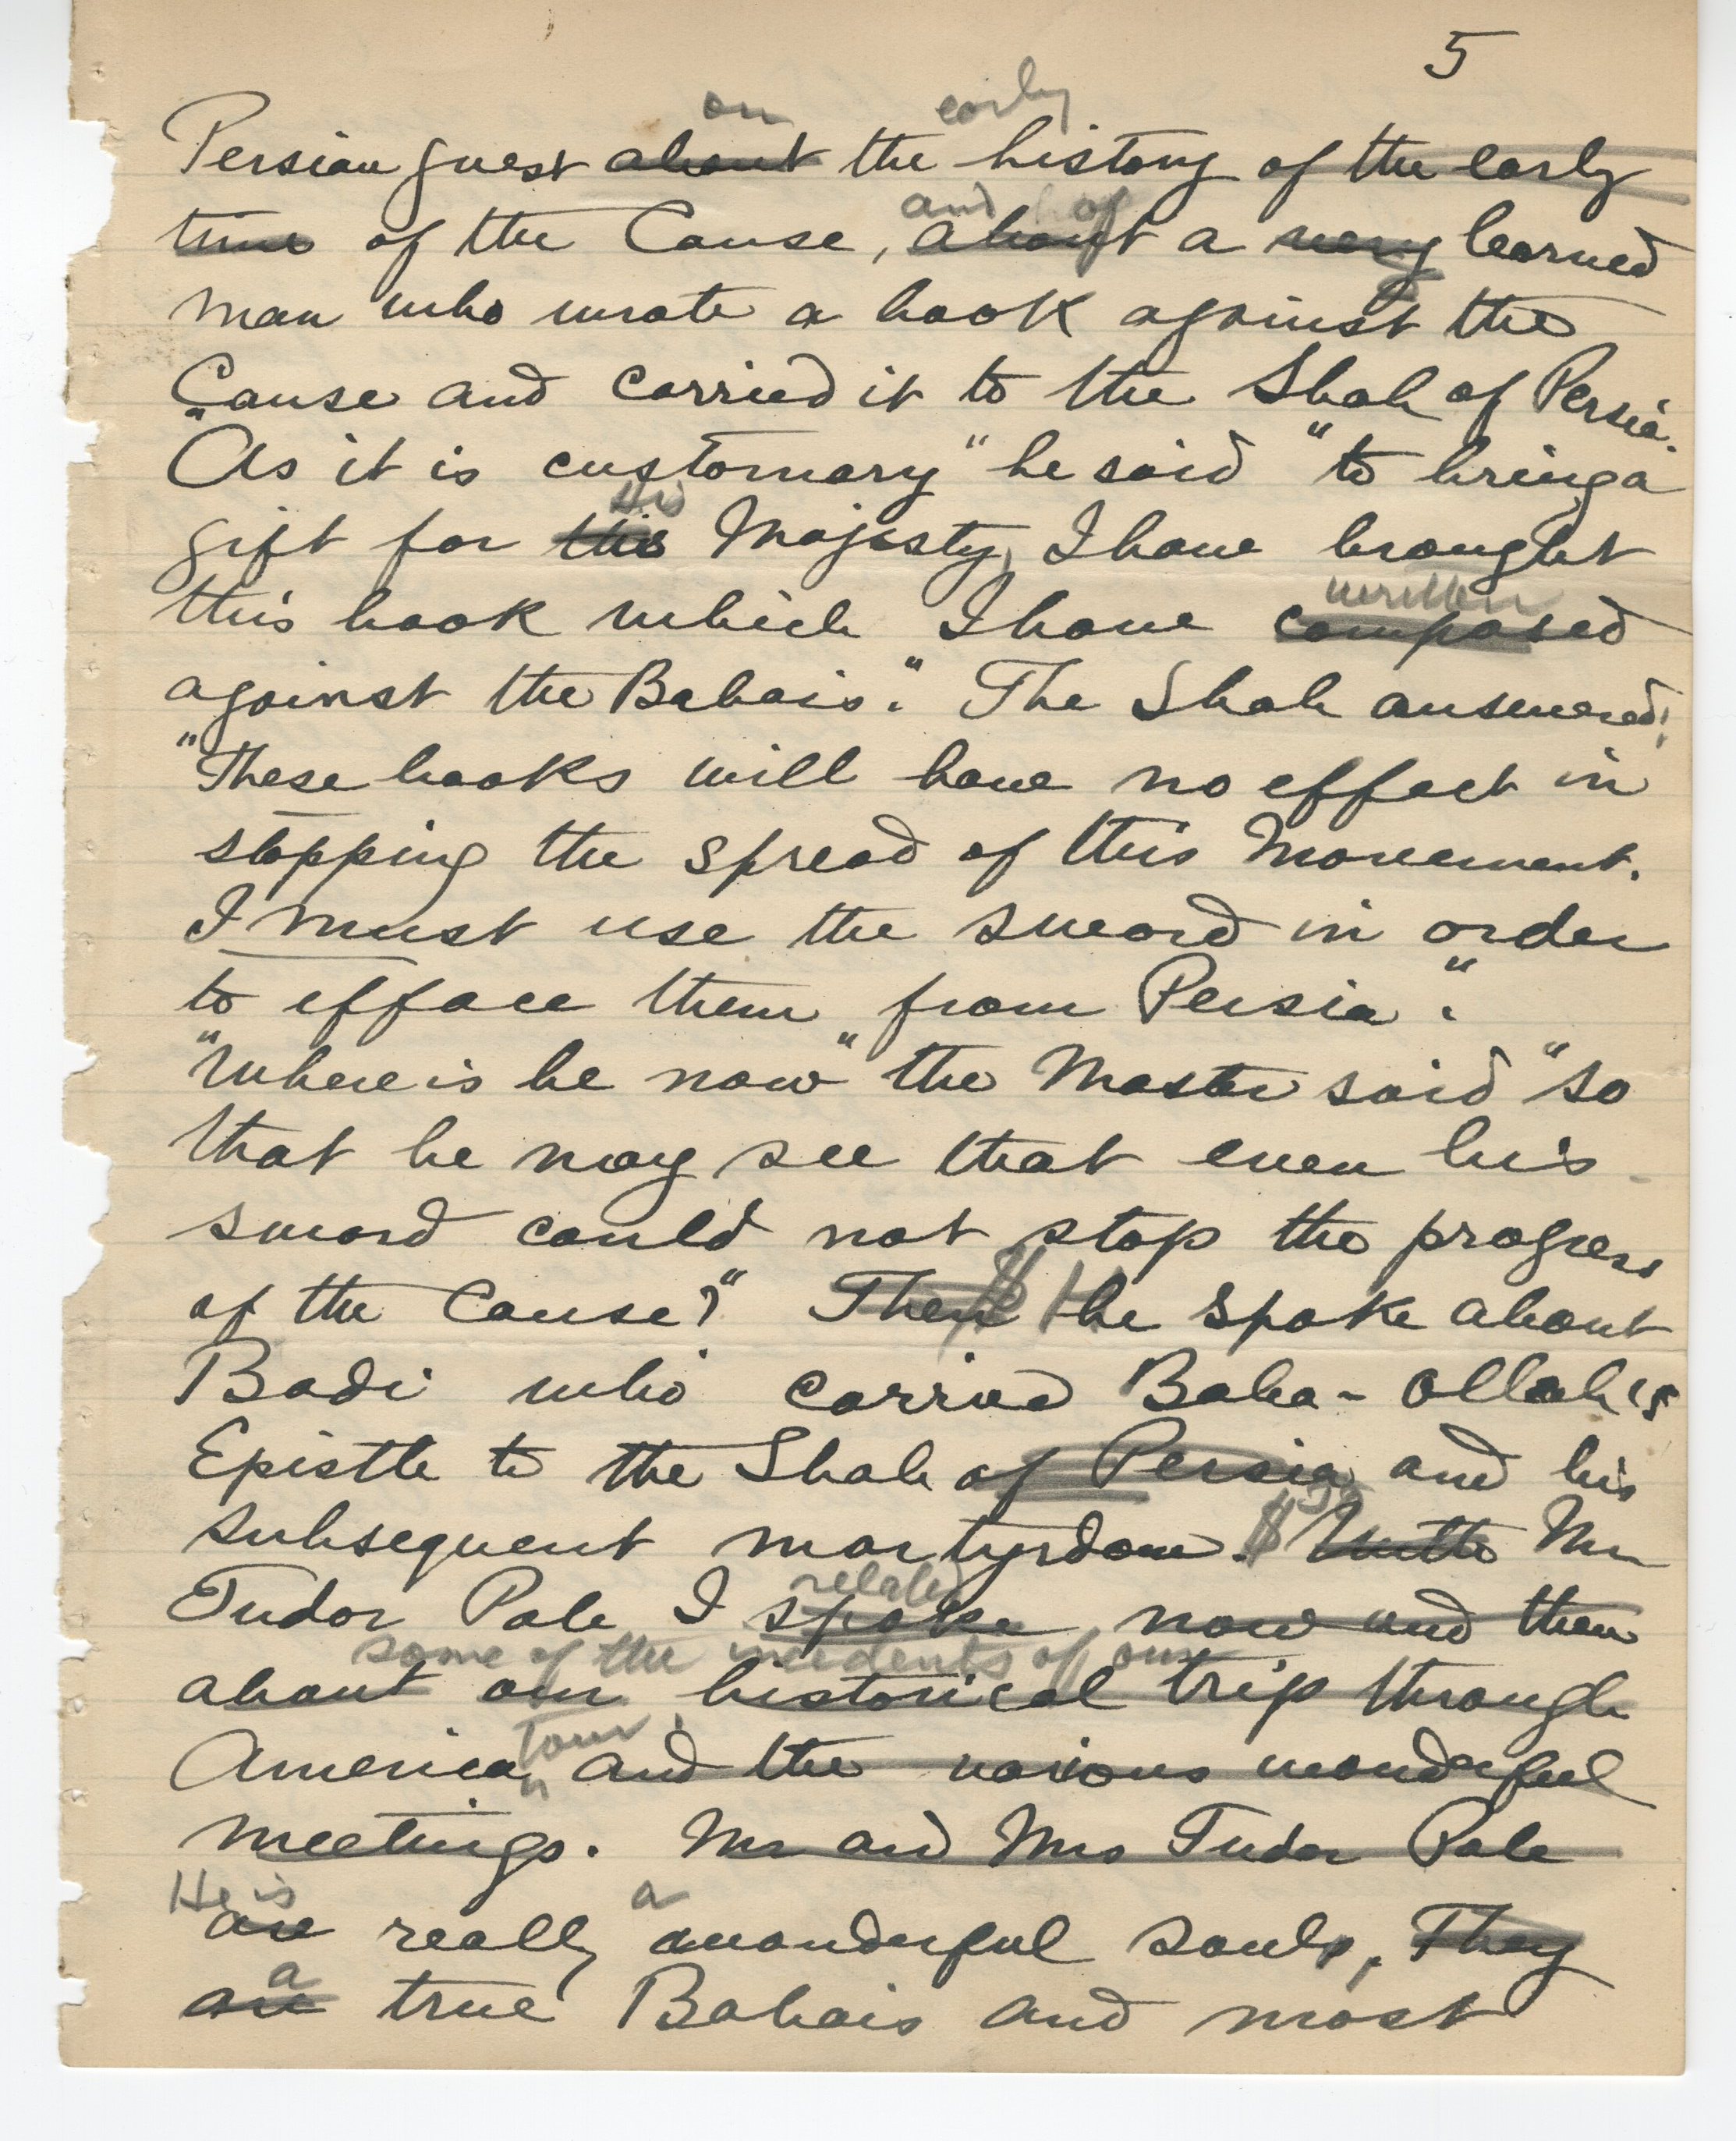 5
on early
Persian guest about the history of the early
and of
time of the Cause, about a very learned
man who wrote a book against the
Cause and carried it to the Shah of Persia.
"As it is customary" he said "to bring a
His
gift for this Majesty, I have brought
written
this book which I have composed
against the Bahais." The Shah answered:
"These books will have no effect in
stopping the spread of this Movement.
I must use the sword in order
to efface them from Persia".
"Where is he now" the Master said "so
that he may see that even his
sword could not stop the progress
of the Cause?" Then he spoke about
Badi who carried Baha-ollah's
Epistle to the Shah of Persia and his
To
subsequent martyrdom. With Mr
related
Tudor Pole I spoke now and then
some of the incidents of our
about our historical trip through
tour.
American and the various wonderful
meetings. Mr and Mrs Tudor Pole
He is a
are really wonderful souls, They
a
are true Bahais and most